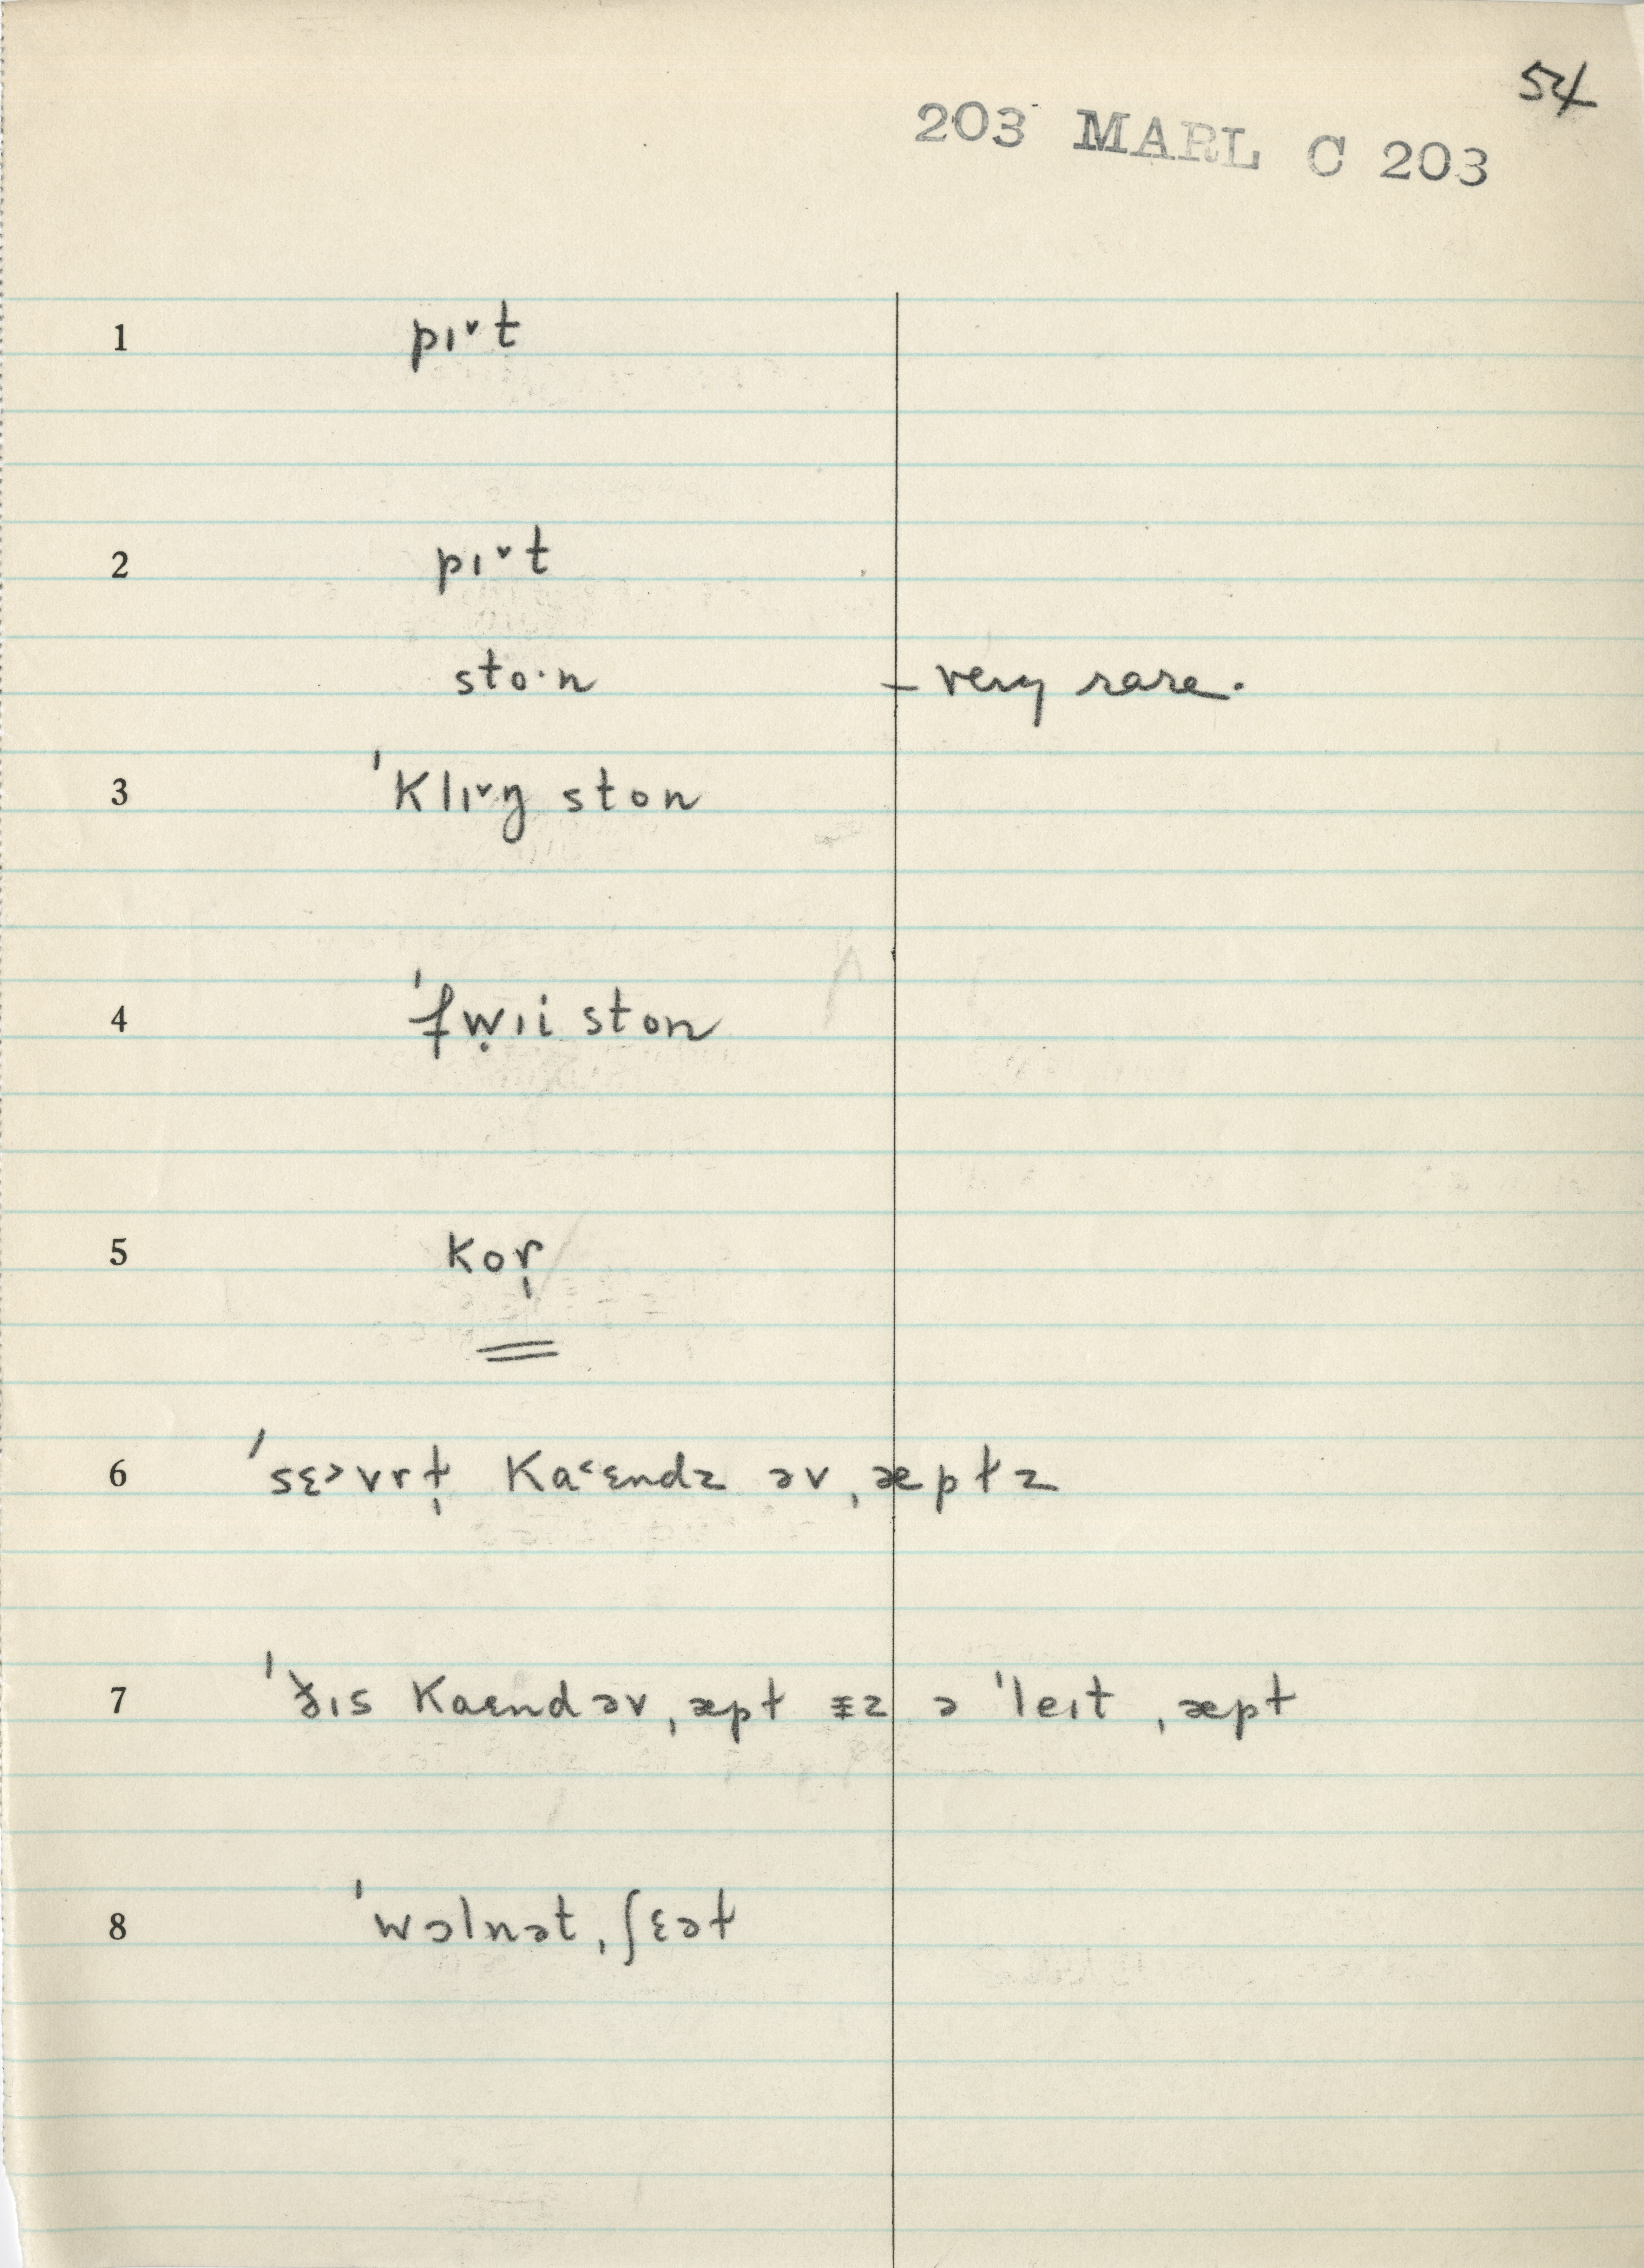 54
203 MARL C 203
1 pɪˇt
2 pɪˇt
sto·n – very rare.
3 ˈklɪˇŋ ston
4 ˈfwɪi ston
5 kor̩
6 ˈsɛ˃vrt̩ ka˂ɛndz əv ˌæptz
7 ˈðɪs kaɛnd əv ˌæpt ɪz ə ˈleɪt ˌæpt
8 ˈwɔlnət ˌʃɛət